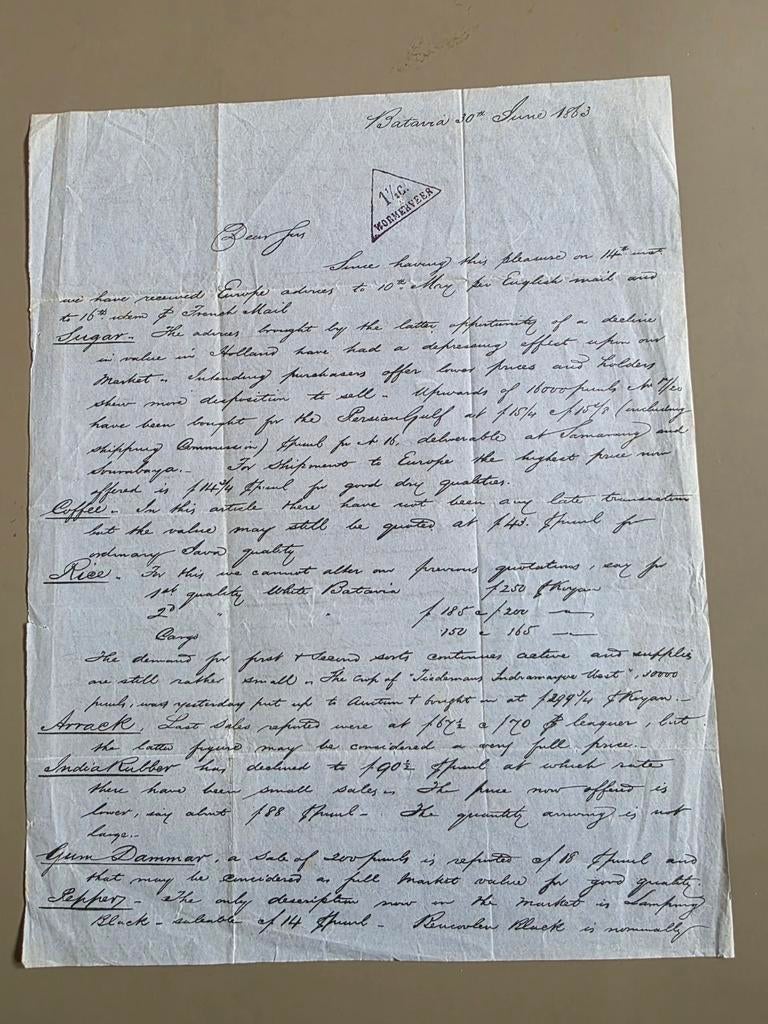 Batavia 30th June 1863
1½ C.
WORMERVEER
Dear Sirs
Since having this pleasure on 14th inst.
we have received Europe advices to 10th May per English mail and
to 16th idem ⅌ French Mail
Sugar. The advices brought by the latter opportunity of a decline
in value in Holland have had a depressing effect upon our
Market. Intending purchasers offer lower prices and holders
shew more disposition to sell. Upwards of 16000 piculs No
have been bought for the Persian Gulf at f15¼ (including
shipping Commission) ⅌ picul for No 16. deliverable at Samarang and
Sourabaya. For Shipment to Europe the highest price now
offered is f14¾ ⅌ picul for good dry qualities.
Coffee. In this article there have not been any late transactions
but the value may still be quoted at f43. ⅌ picul for
ordinary Java quality
Rice. For this we cannot alter our previous quotations, say for
1st quality White Batavia f250 ⅌ Koyan
2d " " f185 a f200 —
Cargo 150 a 165 —
The demand for first & Second sorts continues active and supplies
are still rather small. The Crop of "Tiedemans Indramayoe West", 10000
piculs, was yesterday put up to Auction & bought in at ⅌ Koyan.
Arrack. Last Sales reported were at f67½ a f70 ⅌ leaguer, but
the latter figure may be considered a very full price.
India Rubber has declined to f90½ ⅌ picul at which rate
there have been small sales. The price now offered is
lower, say about f88 ⅌ picul. The quantity arriving is not
large.
Gum Dammar, a sale of 200 piculs is reported @ f18 ⅌ picul and
that may be considered as full Market value for good quality.
Pepper. The only description now in the market is Lampong
Black - saleable @ f14 ⅌ picul - Bencoolen Black is nominally